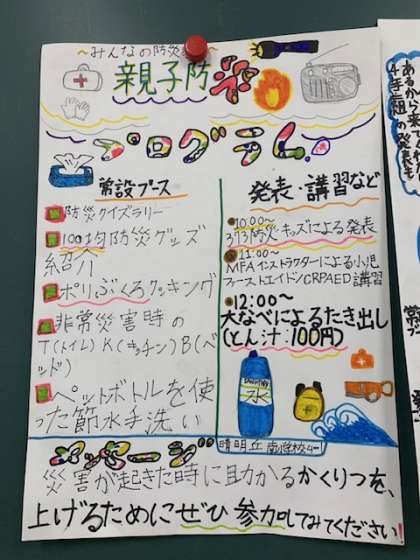 ～みんなの防災
親子防災
プログラム
常設ブース
防災クイズラリー
100均防災グッズ
紹介
ポリぶくろクッキング
非常災害時の
T(トイレ)K(キッチン)B(ベ
ッド)
ペットボトルを使
った節水手洗い
発表・講習など
10:00～
373防災キッズによる発表
11:00～
MFAインストラクターによる小児
ファーストエイド/CRPAED講習
12:00～
大なべによるたき出し
(とん汁:100円)
水
晴明丘南小学校4-4
メッセージ
災害が起きた時に助かるかくりつを、
上げるためにぜひ参加してみてください!